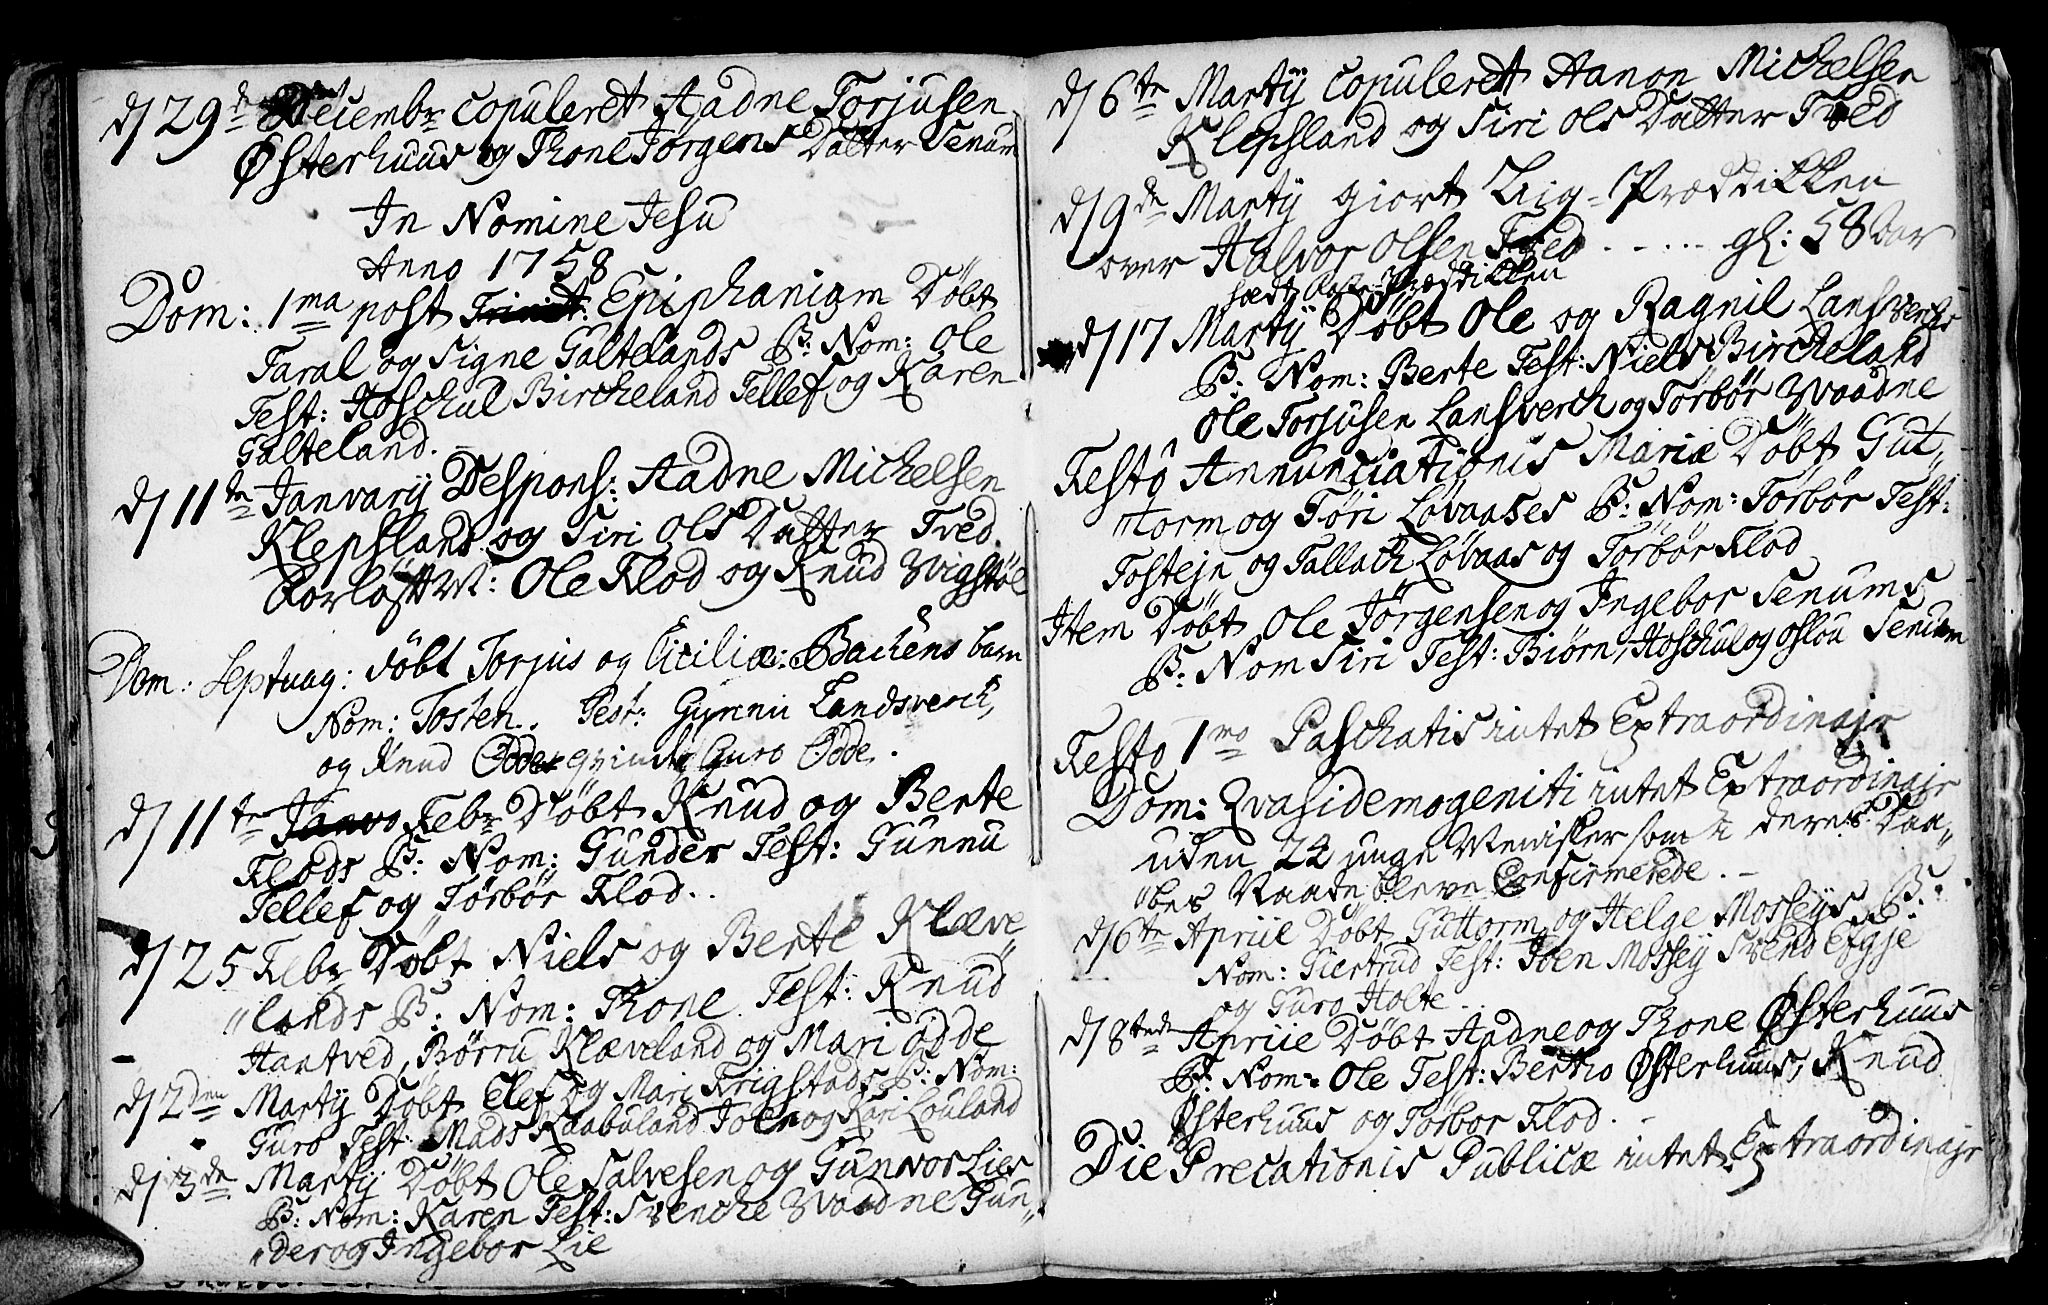 d/ 29de Decembr copuleret Aadne Torjusen
Østerhuus og Thone Jørgens Datter Senum
In Nomine Jesu
Anno 1758
Dom: 1ma post Trinit: Epiphaniam Døbt
Taral og Signe Galtelands B: Nom: Ole
Test: Hoschul Bircheland Tellef og Karen
Galteland.
d/ 11te Janvarij Despons: Aadne Michelsen
Klepsland og Siri Ols Datter Tved.
Forløft M: Ole Flod og Knud Vigstøl
Dom: Septuag: døbt Torjus og Ciciliæ Bachens barn
Nom: Tosten. Test: Gunnu Landsverch,
og Knud Odde qvinde Guro Odde.
d/ 11te Janvo Febr Døbt Knud og Berte
Flods B: Nom: Gunder Test: Gunnu
Tellef og Tørbør Flod.
d/ 25 Febr Døbt Niels og Berte Klæve
lands B: Nom: Thone Test: Knud
Haatved, Børru Klæveland og Mari Odde
d/ 2den Martij Døbt Elef og Mari Frigstads B: Nom:
Guro Test: Mads Raabuland Joen og Kari Louland
d/ 3de Martij Døbt Ole Salvesen og Gunvor Lies
B: Nom: Karen Test: Svenche Vaadne Gun
der og Ingebør Lie
d/ 6te Martij Copuleret Aanon Michelsen
Klepsland og Siri Ols Datter Tved
d/ 9de Martij giort Liig-Præddikken
over Halvor Olsen Tved - - - - gl: 58 Aar
hædt Præddikken
d/ 17 Martij Døbt Ole og Ragnil Lansverchs
B: Nom: Berte Test: Niels Bircheland
Ole Torjusen Lansverch og Tørbør Vaadne
Festo Annunciationis Mariæ Døbt Gut
torm og Tøri Løvaases B: Nom: Tørbør Test:
Tostejn og Tallach Løvaas og Tørbør Flod
Item Døbt Ole Jørgensen og Ingebor Senums
B: Nom Siri Test: Biørn, Hoschul og Oslou Senum
Festo 1mo Paschatis intet Extraordinajr
Dom: Qvasidemogeniti intet Extraordinajr
uden 24 unge Menisker som i deres Daa
bes Naade bleve Confirmerede. -
d/ 6te Apriil Døbt Guttorm og Helge Mosseys B:
Nom: Giertrud Test: Joen Mossey Svend Efgje
og Guro Holte.
d/ 8tende Apriil Døbt Aadne og Thone Østerhuus
B: Nom: Ole Test: Bertho Østerhuus, Knud
Østerhuus og Tørbor Flod.
Die Precationis Publicæ intet Extraordinajr